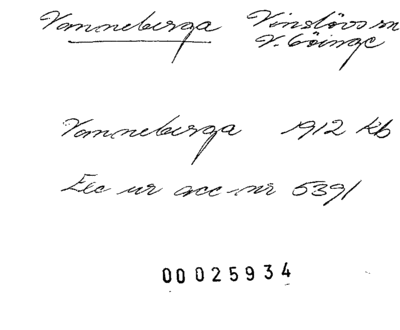 Vanneberga Vinslövs sn
V. Göinge
Vanneberga 1912 kb
Exc ur acc nr 5391
00 025934